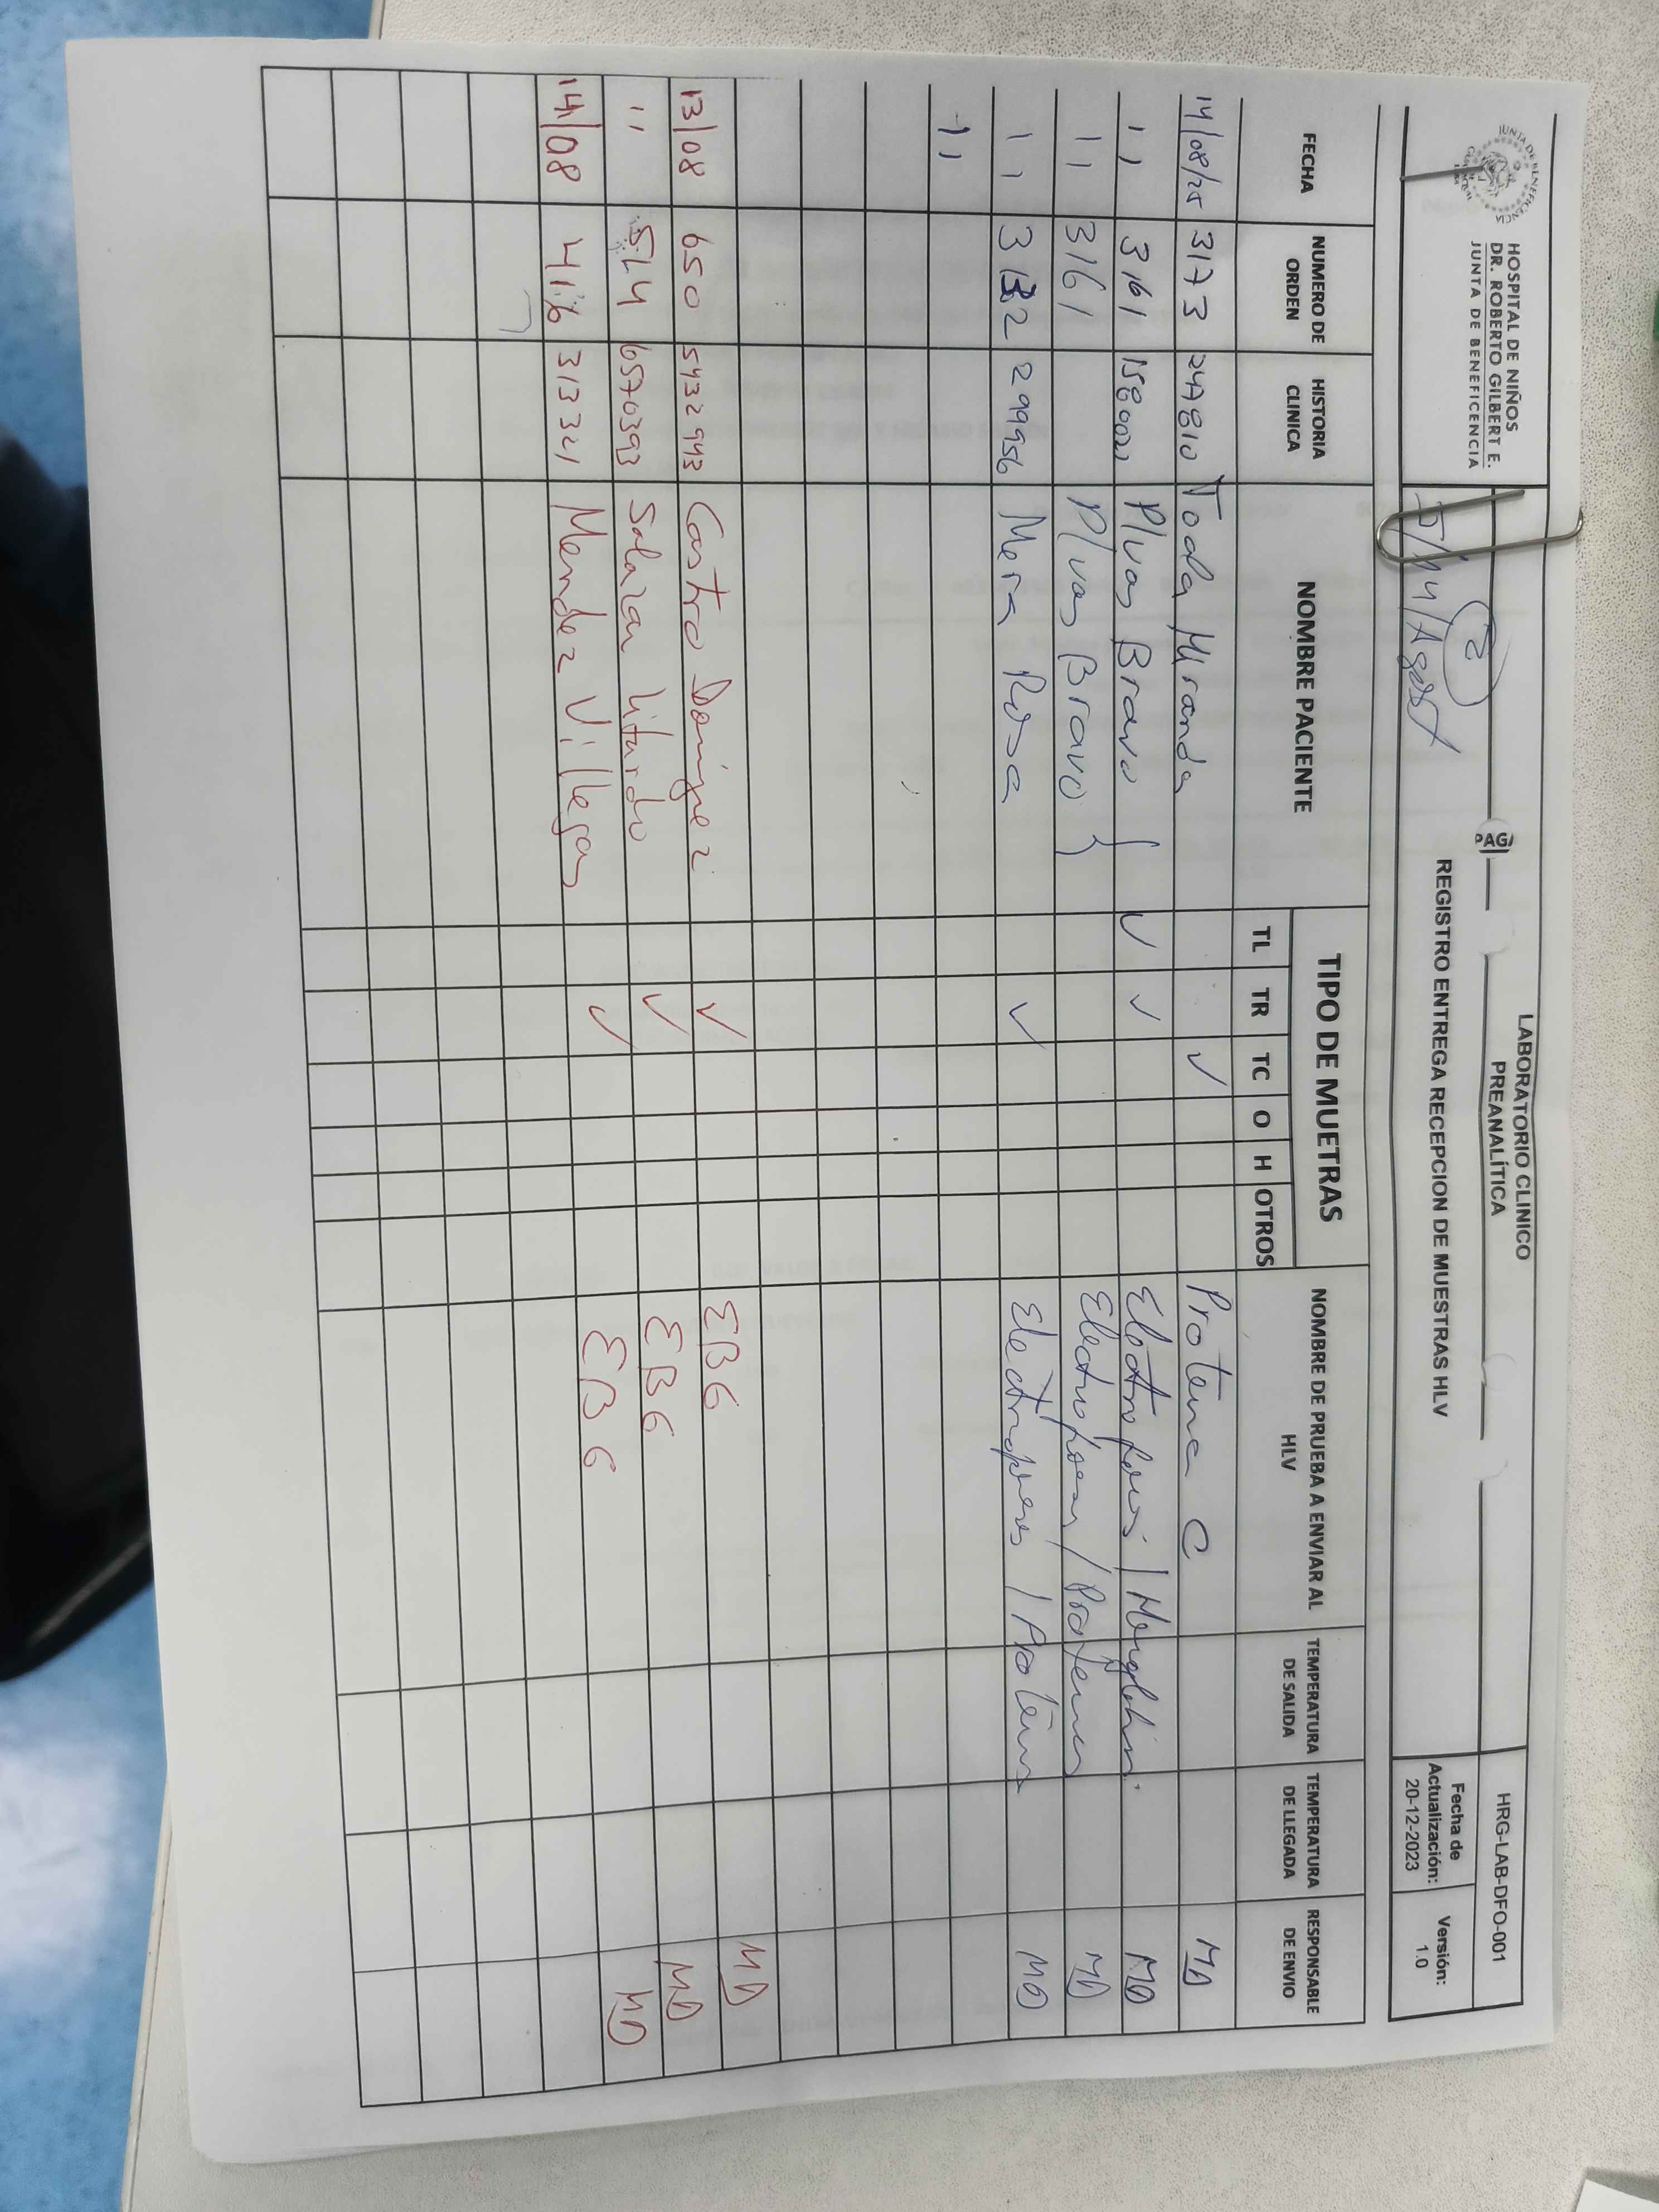 JUNTA DE BENEFICENCIA
HOSPITAL DE NIÑOS
DR. ROBERTO GILBERT E.
JUNTA DE BENEFICENCIA
PAG
LABORATORIO CLINICO
PREANALÍTICA
REGISTRO ENTREGA RECEPCION DE MUESTRAS HLV
HRG-LAB-DFO-001
Fecha de Actualización: 20-12-2023
Versión: 1.0
14/Agost
FECHA NUMERO DE ORDEN HISTORIA CLINICA NOMBRE PACIENTE TIPO DE MUETRAS NOMBRE DE PRUEBA A ENVIAR AL HLV TEMPERATURA DE SALIDA TEMPERATURA DE LLEGADA RESPONSABLE DE ENVIO
TL TR TC O H OTROS
14/08/25 3173 247810 Miranda ✓ Proteina C MD
11 3161 Plvas Bravo { ✓ ✓ MD
11 3161 Plvas Bravo } MD
11 299956 Mera Rosa ✓ MD
11
13/08 650 5432943 Castro Domínguez ✓ EBG MD
11 514 6570393 Salazar Liturdo ✓ EBG MD
14/08 313321 Mendez Villegas ✓ EBG MD